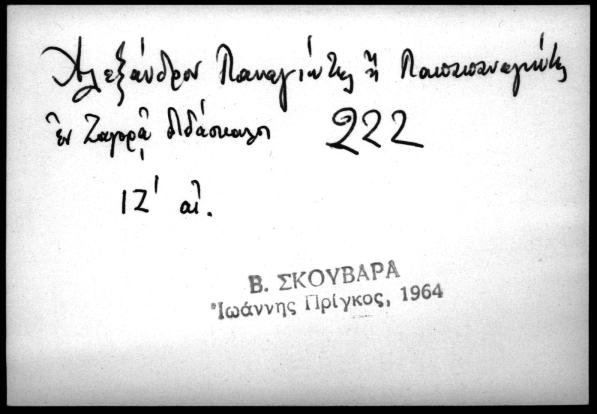 Ἀλεξάνδρου Παναγιώτης ἢ Παπαπαναγιώτης
ἐν Ζαγορᾷ διδάσκαλοι 222
ΙΖ' αἰ.
Β. ΣΚΟΥΒΑΡΑ
Ἰωάννης Πρίγκος, 1964